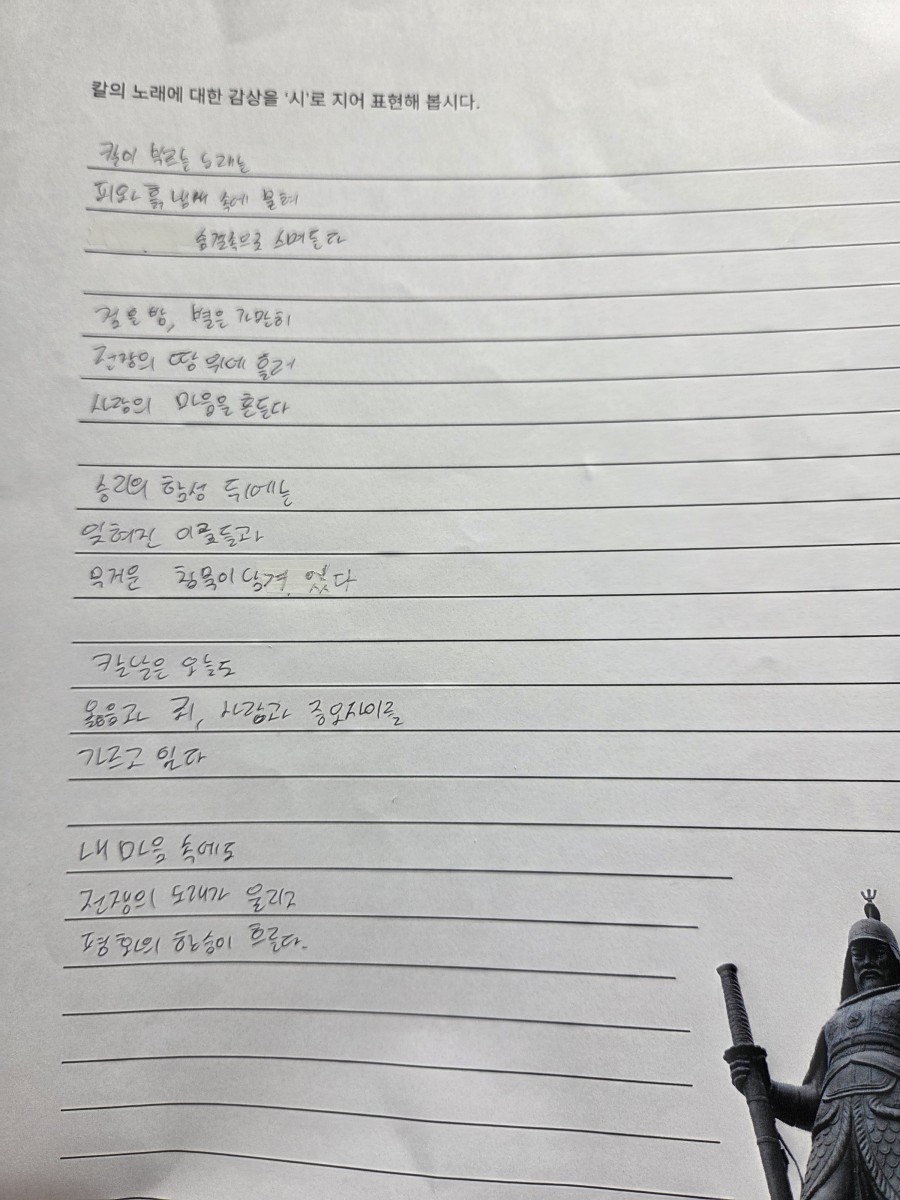 칼의 노래에 대한 감상을 '시'로 지어 표현해 봅시다.
칼이 부르는 노래는
피와 흙 냄새 속에 묻혀
숨결속으로 스며든다
젊은 밤, 별은 가만히
전장의 땅 위에 흘러
사람의 마음을 흔든다
승리의 함성 뒤에는
잊혀진 이름들과
무거운 침묵이 남겨 있다
칼날은 오늘도
옳음과 죄, 사람과 증오사이를
가르고 있다
내 마음 속에도
전쟁의 노래가 울리고
평화의 한숨이 흐른다.